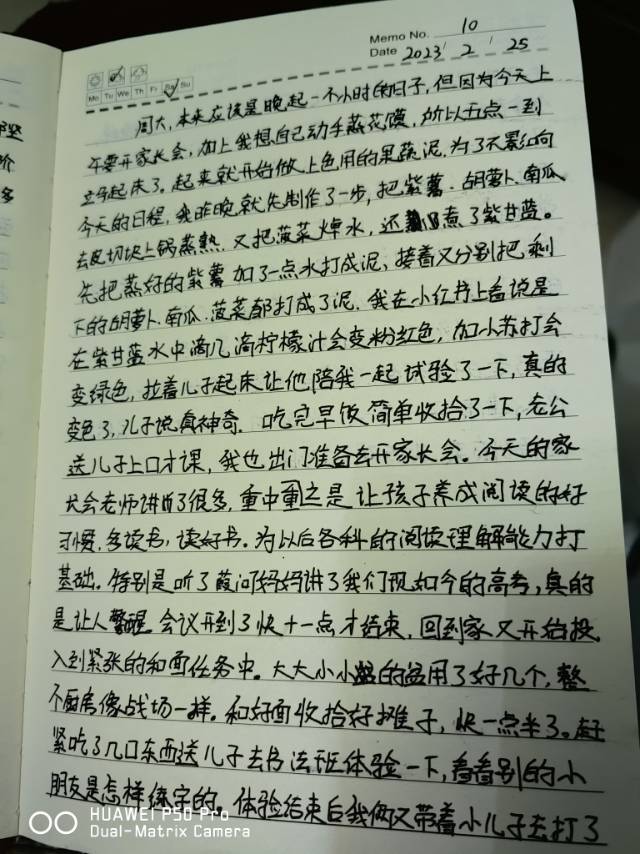 Memo No. 10
Mo Tu We Th Fr Sa Su
Date 2023 / 2 / 25
周六,本来应该是晚起一个小时的日子,但因为今天上
午要开家长会,加上我想自己动手蒸花馍,所以五点一到
立马起床了。起来就开始做上色用的果蔬泥,为了不影响
今天的日程,我昨晚就先制作了一步,把紫薯、胡萝卜、南瓜
去皮切块上锅蒸熟,又把菠菜焯水,还煮了紫甘蓝。
先把蒸好的紫薯加了一点水打成泥、接着又分别把剩
下的胡萝卜、南瓜、菠菜都打成了泥,我在小红书上看说是
在紫甘蓝水中滴几滴柠檬汁会变粉红色,加小苏打会
变绿色,拉着儿子起床让他陪我一起试验了一下,真的
变色了,儿子说真神奇。吃完早饭简单收拾了一下,老公
送儿子上口才课,我也出门准备去开家长会。今天的家
长会老师讲了很多,重中重之是让孩子养成阅读的好
习惯,多读书,读好书。为以后各科的阅读理解能力打
基础。特别是听了葭问妈妈讲了我们现如今的高考,真的
是让人警醒。会议开到了快十一点才结束,回到家又开始投
入到紧张的和面任务中。大大小小的盆用了好几个,整
个厨房像战场一样。和好面收拾好摊子,快一点半了。赶
紧吃了几口东西送儿子去书法班体验一下,看看别的小
朋友是怎样练字的。体验结束后我俩又带着小儿子去打了
HUAWEI P50 Pro
Dual-Matrix Camera